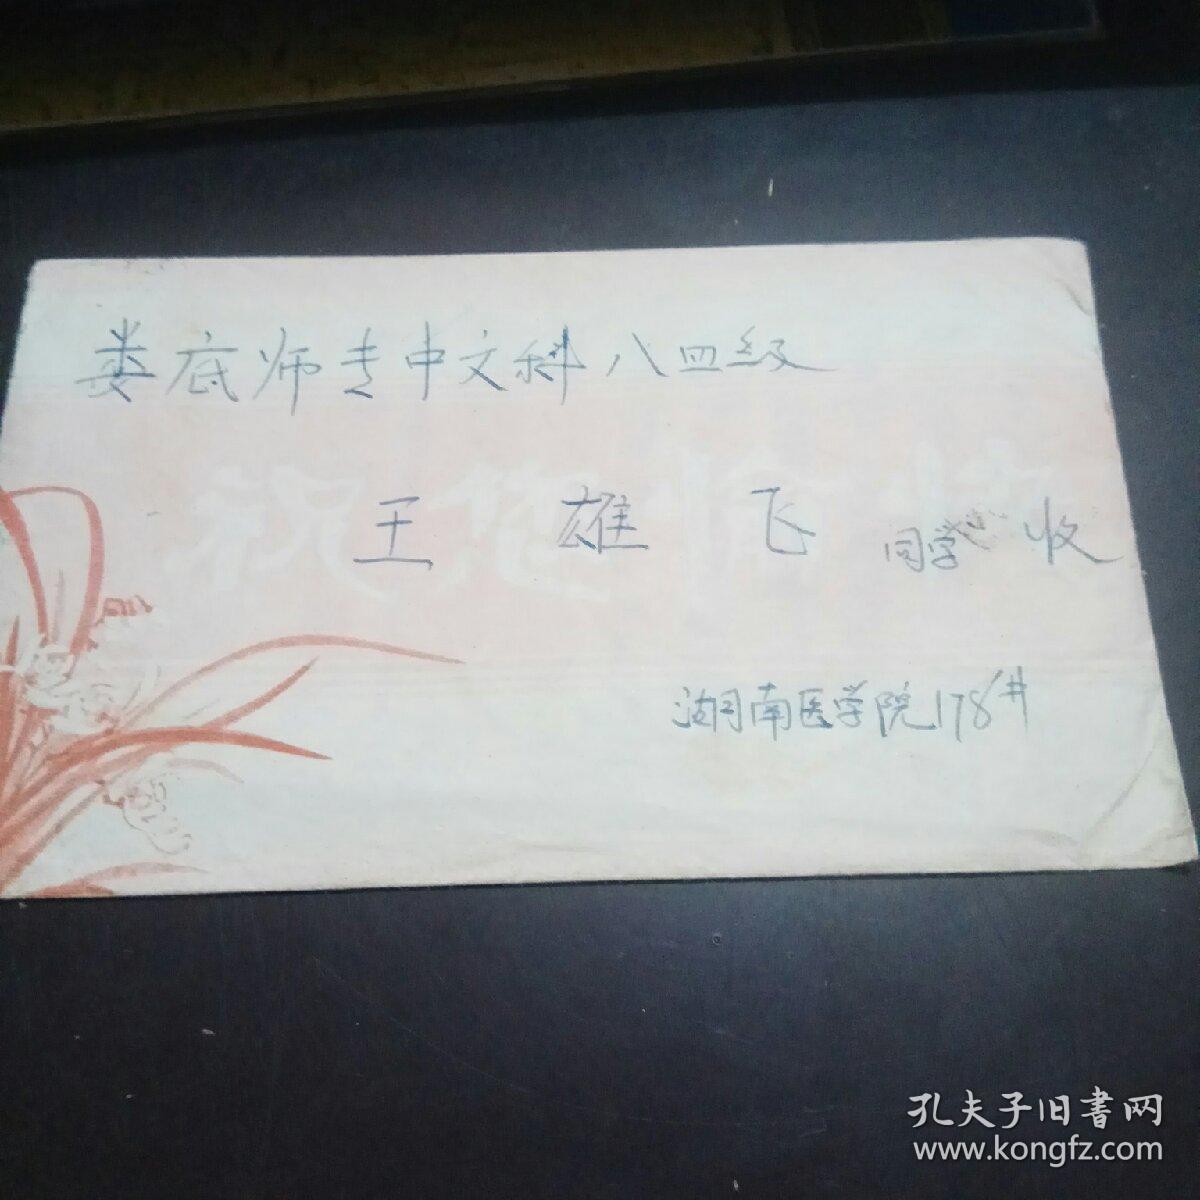 娄底师专中文科八四级
王雄飞同学收
湖南医学院178#
孔夫子旧書网
www.kongfz.com